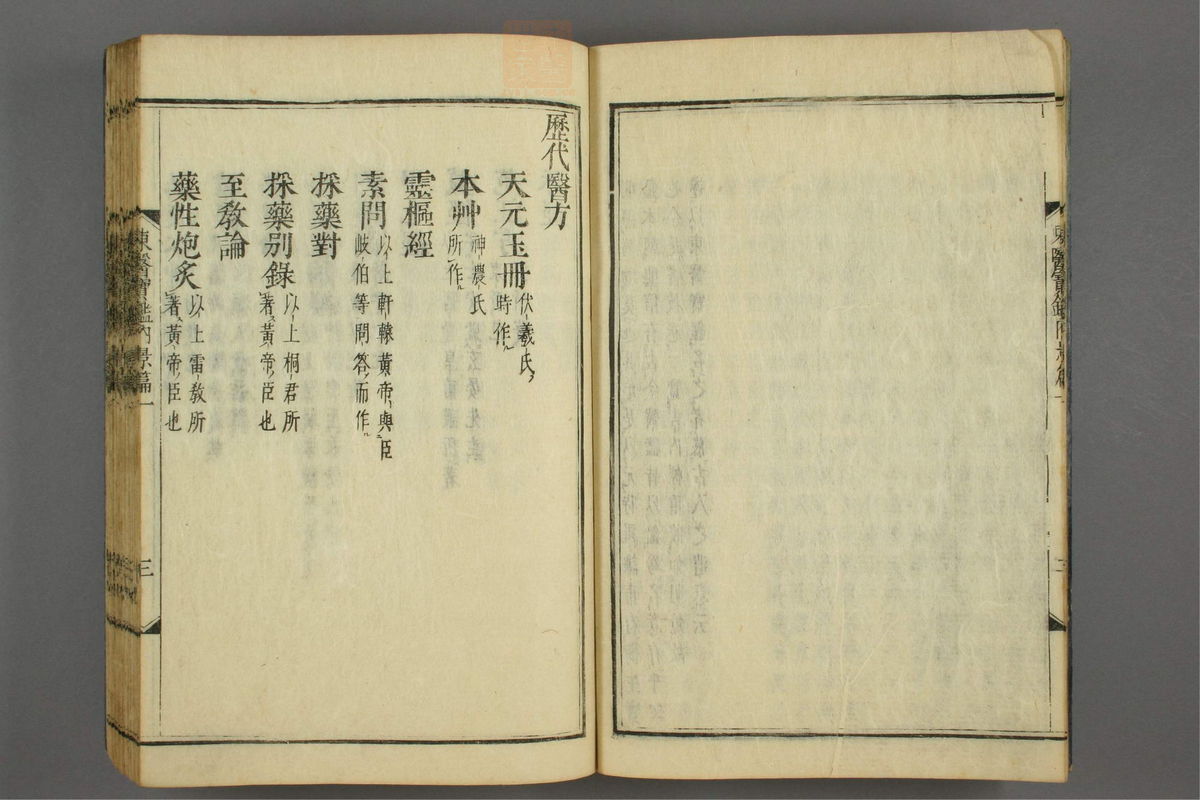 歷代醫方
天元玉冊 伏羲氏
時作
本艸 神農氏
所作
靈樞經
素問 以上軒轅黃帝與臣
岐伯等問答而作
採藥對
採藥別錄 以上桐君所
著黃帝臣也
至教論
藥性炮炙 以上雷教所
著黃帝臣也
東醫寶鑑內景篇一
三